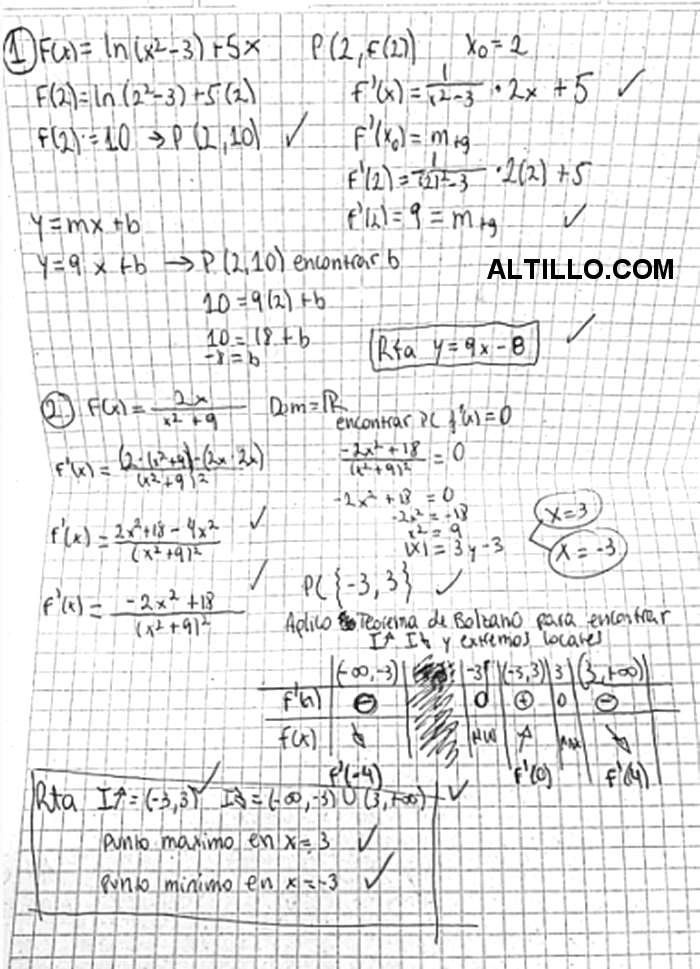 1 F(x) = ln(x²-3) + 5x
P(2, f(2)) x₀ = 2
F(2) = ln(2²-3) + 5(2)
f'(x) = 1/(x²-3) · 2x + 5 ✓
f(2) = 10 → P(2,10) ✓
F'(x₀) = m+g
f'(2) = 1/((2)²-3) · 2(2) + 5
f'(2) = 9 = m+g ✓
y = mx + b
y = 9 x + b → P(2,10) encontrar b
ALTILLO.COM
10 = 9(2) + b
10 = 18 + b
-8 = b
Rta y = 9x - 8 ✓
2 F(x) = 2x/(x² + 9) Dom = ℝ
encontrar PC f'(x) = 0
f'(x) = (2·(x²+9) - (2x · 2x))/(x²+9)²
(-2x² + 18)/(x²+9)² = 0
-2x² + 18 = 0
-2x² = -18
x² = 9
|x| = 3 y -3
x = 3
x = -3
f'(x) = (2x² + 18 - 4x²)/(x²+9)² ✓
PC {-3, 3} ✓
f'(x) = (-2x² + 18)/(x²+9)² ✓
Aplico Teorema de Bolzano para encontrar
I↑ I↓ y extremos locales
(-∞, -3) -3 (-3, 3) 3 (3, +∞)
f'(x) ⊖ 0 ⊕ 0 ⊖
f(x) ↘ MIN ↗ MAX ↘
f'(-4) f'(0) f'(4)
Rta I↑ = (-3, 3) ✓ I↓ = (-∞, -3) ∪ (3, +∞) ✓
punto maximo en x = 3 ✓
punto minimo en x = -3 ✓